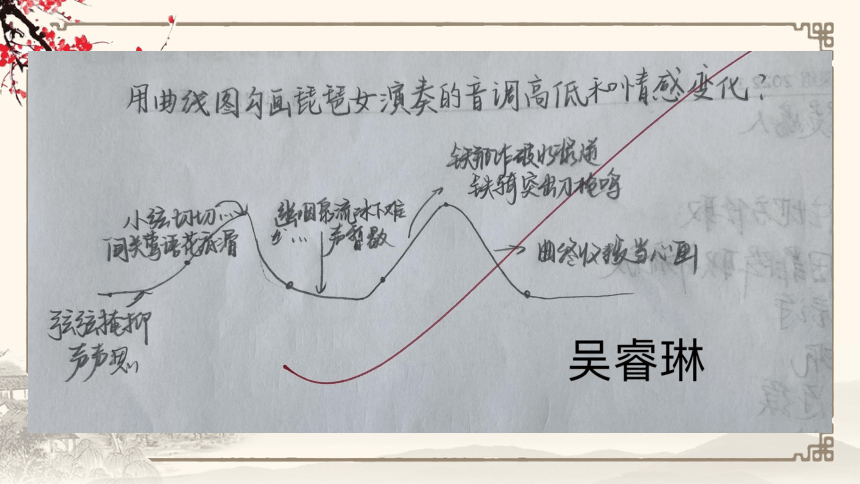 用曲线图勾画琵琶女演奏的音调高低和情感变化?
小弦切切…
间关莺语花底滑
幽咽泉流冰下难
声暂歇
铁骑突出刀枪鸣
曲终收拨当心画
弦弦掩抑
声声思
吴睿琳